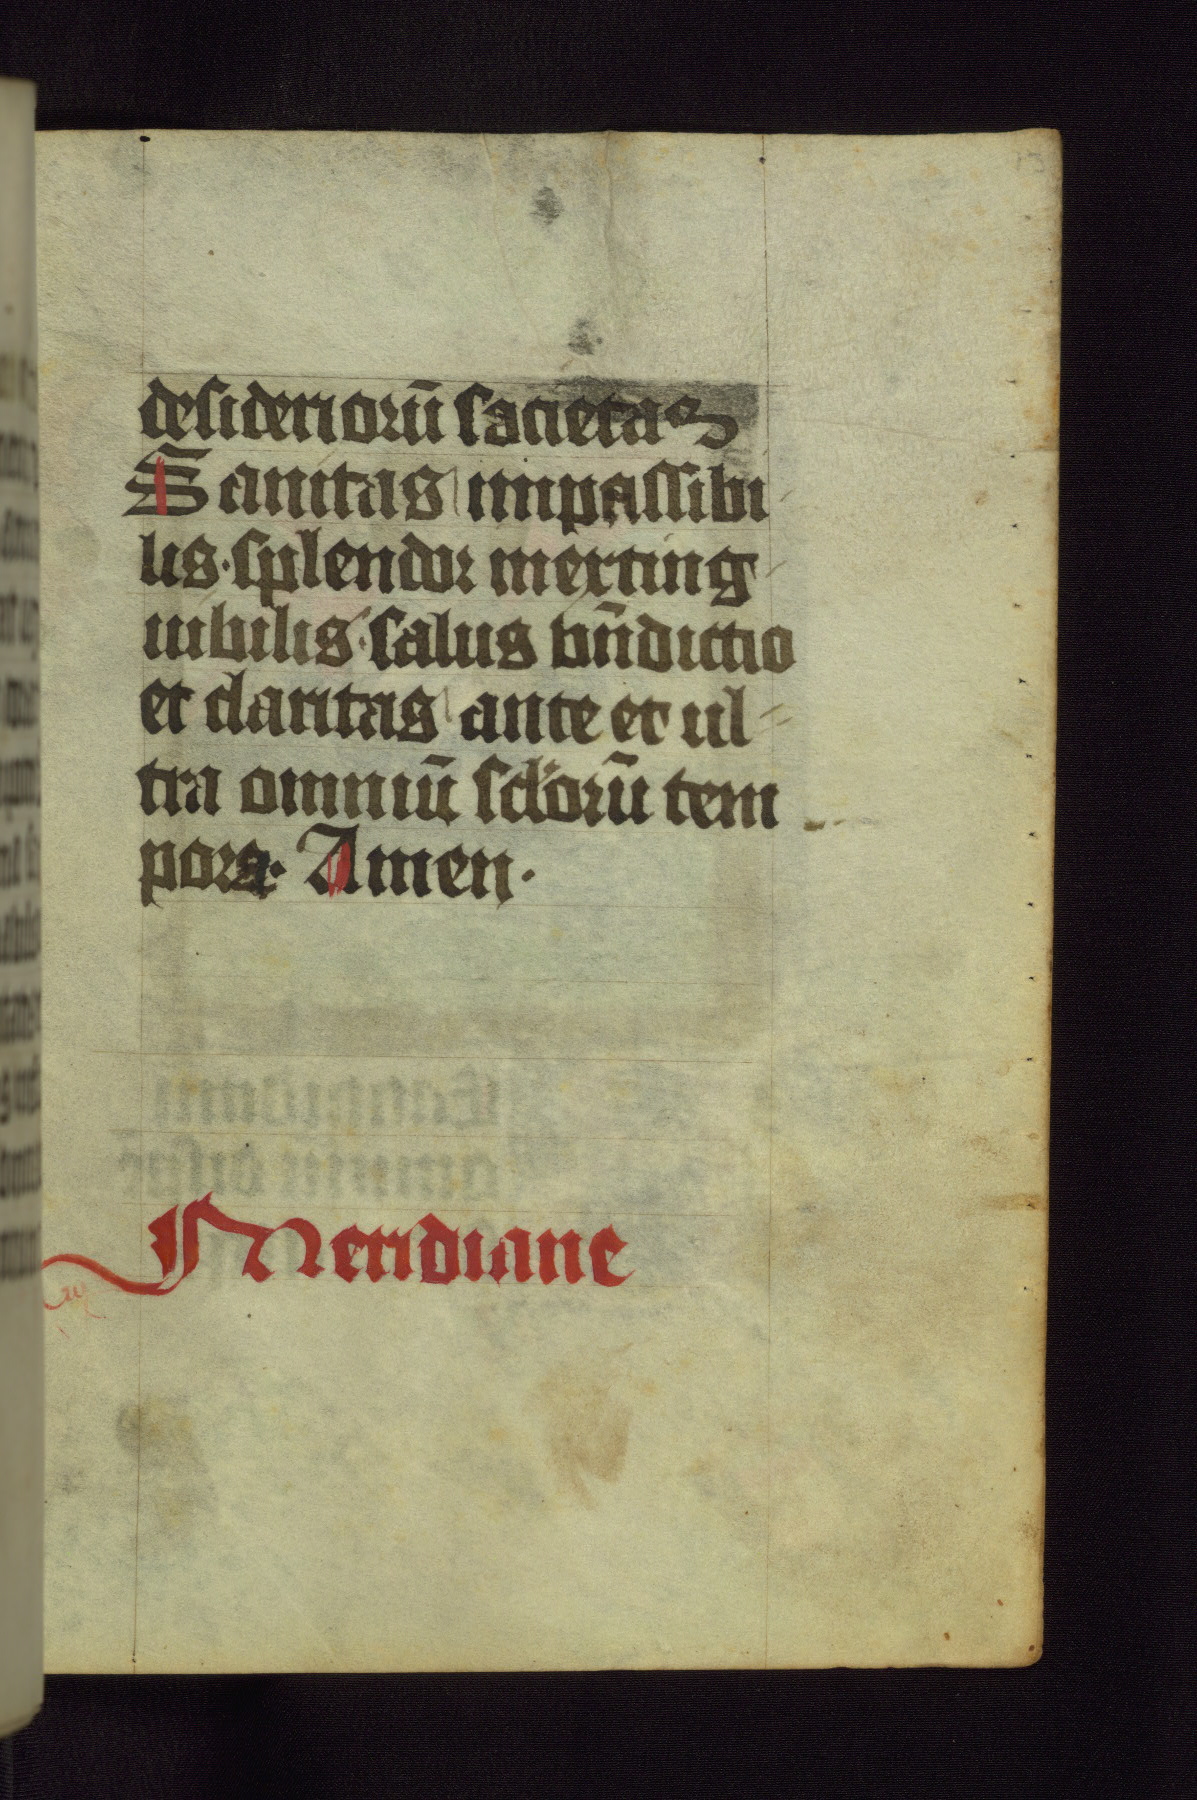 desiderioru̅ sacietas
Sanitas impassibi
lis · splendor inexting
uibilis · salus bn̅dictio
et claritas ante et ul
tra omniu̅ sclʼoru̅ tem
pora · Amen ·
Meridiane